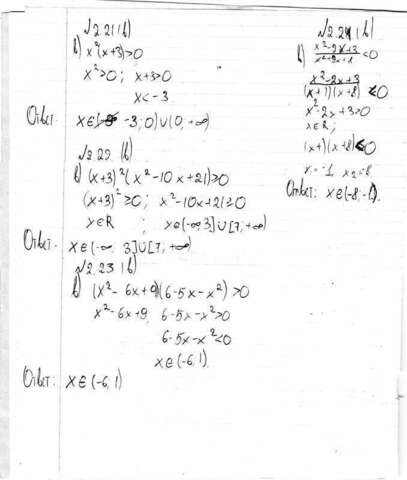 №2.21(b)
b) x²(x+3)>0
x²>0; x+3>0
x<-3
Ответ: x∈(-3;0)∪(0,+∞)
№2.22.(b)
b) (x+3)²(x²-10x+21)≥0
(x+3)²≥0; x²-10x+21≥0
x∈R; x∈(-∞,3]∪[7,+∞)
Ответ. x∈(-∞, 3]∪[7,+∞)
№2.23(b)
b) (x²-6x+9)(6-5x-x²)>0
x²-6x+9, 6-5x-x²>0
6-5x-x²<0
x∈(-6,1)
Ответ: x∈(-6,1)
№2.24(b)
b) x²-2x+3 / <0
x²-2x+3 / (x+1)(x+8) ≤0
x²-2x+3>0
x∈R;
(x+1)(x+8)≤0
x₁=-1 x₂=-8
Ответ: x∈(-8,-1).